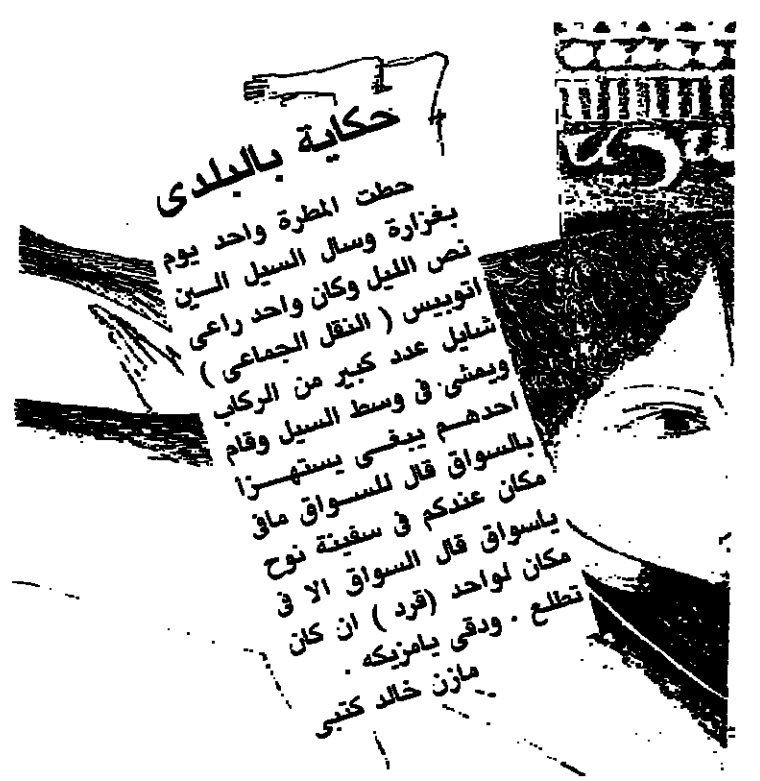 حكاية بالبلدى
حطت المطرة واحد يوم
بغزارة وسال السيل الـين
نص الليل وكان واحد راعى
اتوبيس ( النقل الجماعى )
شايل عدد كبير من الركاب
ويمشى فى وسط السيل وقام
احدهـم يبغـى يستهـزا
بالسواق قال للسـواق مافى
مكان عندكم فى سفينة نوح
ياسواق قال السواق الا فى
مكان لواحد (قرد ) ان كان
تطلع . ودقى يامزيكه .
مازن خالد كتبى